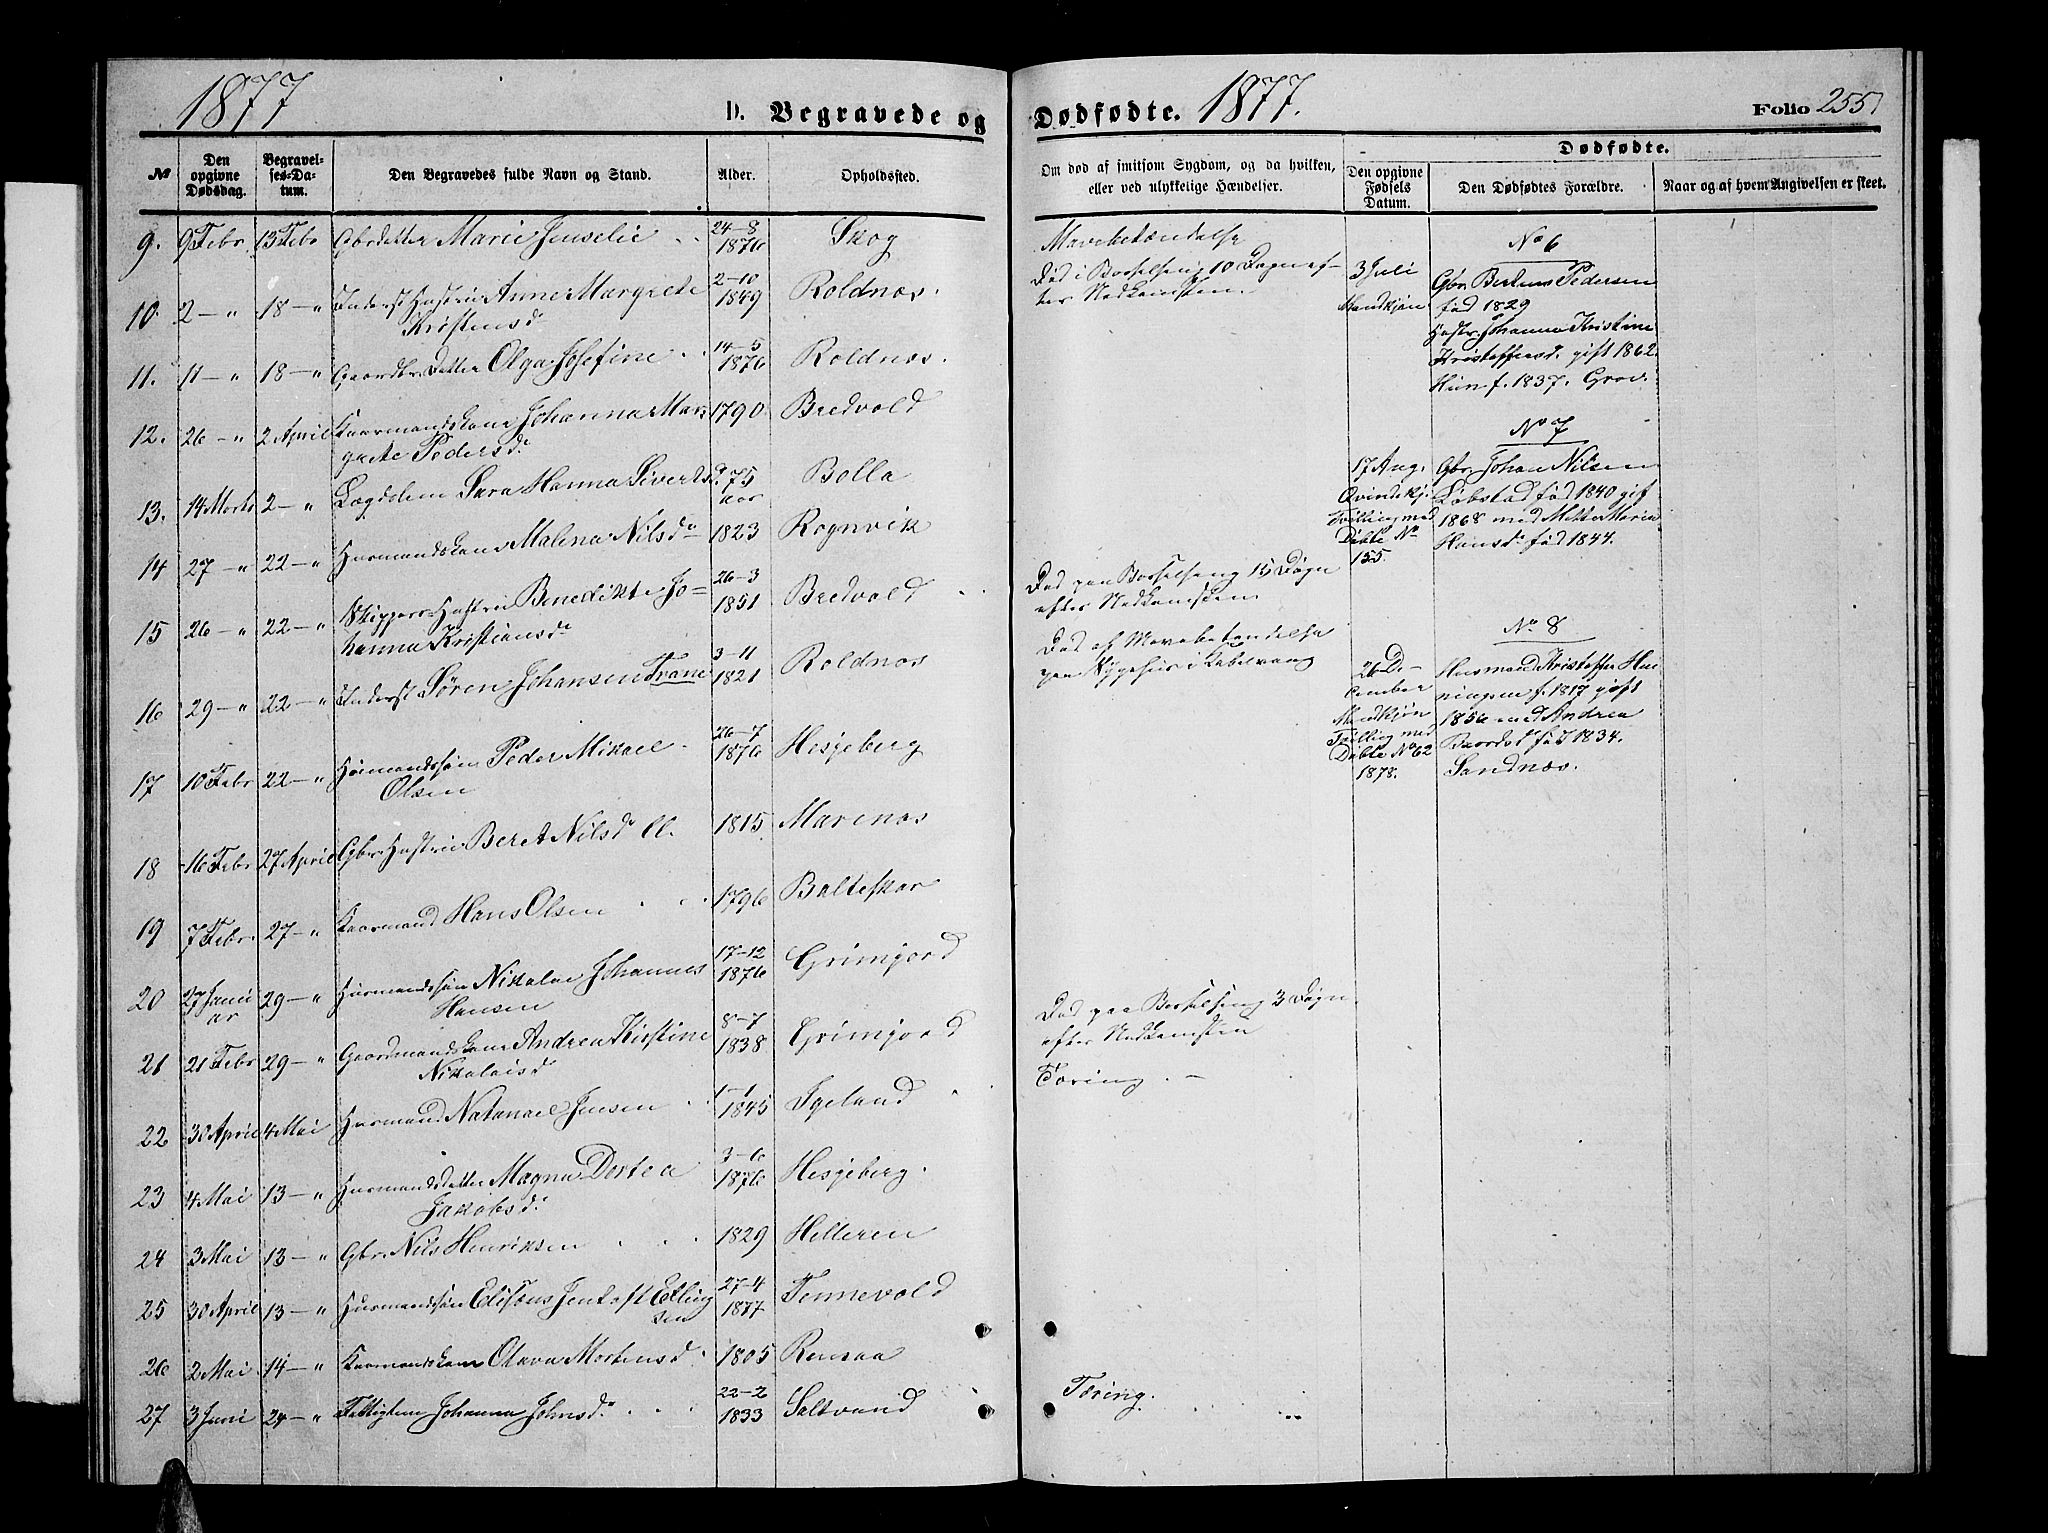 1877
D. Begravede og
Dødfødte. 1877.
Folio 255
№
Den opgivne Dødsdag.
Begravelses-Datum.
Den Begravedes fulde Navn og Stand.
Alder.
Opholdssted.
Om død af smitsom Sygdom, og da hvilken, eller ved ulykkelige Hændelser.
Dødfødte.
Den opgivne Fødsels Datum.
Den Dødfødtes Forældre.
Naar og af hvem Angivelsen er skeet.
9. 9 Febr 13 Febr Gbrdatter Marie Jenselie 24-8 1876 Skog
Mavebetændelse
10. 2 - " 18 - " Inderst Hustru Anne Margrete 2-10 1849 Roldnæs.
Kristensd
Død i Barselseng 10 Dagn ef-
ter Nedkomsten.
11. 11 - " 18 - " Gaardbr Datter Olga Josefine 14-5 1876 Roldnæs.
12. 26 - " 2 April Kaarmandskone Johanna Mar 1790 Bredvold
grete Pedersd.
13. 14 Marts 2 - " Lægdslem Sara Hanna Siverts d. 75 aar Bolla
14 27 - " 22 - " Husmandskone Malena Nilsd 1823 Rognvik
15 26 - " 22 - " Skippers Hustru Benedikte Jo= 26-3 1851 Bredvold
hanna Kristiansd
Død paa Barselseng 15 Døgn
efter Nedkomsten
16 29 - " 22 - " Inderst Søren Johansen Trane 3-11 1821 Roldnæs
Død af Mavebetændelse
paa Sygehus i Kabelvaag
17 10 Febr 22 - " Husmandssøn Peder Mikael 26-7 1876 Hesjeberg
Olsen
18 16 Febr 27 April Gbr Hustru Beret Nilsd 1815 Marenæs
19 7 Febr. 27 - " Kaarmand Hans Olsen 1796 Balteskar
20 27 Janu ar 29 - " Husmandssøn Nikolai Johannes 17-12 1876 Grimjord
Hansen
21 21 Febr 29 - " Gaardmandskone Andrea Kirstine 8-7 1838 Grimjord
Nikolaisd
Død paa Barselseng 3 Døgn
efter Nedkomsten
22 30 April 4 Mai Husmand Natanael Jensen 1-1 1845 Igeland
Tæring.
23 4 Mai 13 - " Husmandsdatter Magna Dortea 3-6 1876 Hesjeberg.
Jakobsd.
24 3 Mai 13 - " Gbr. Nils Henriksen 1829 Helleren
25 30 April 13 - " Husmandssøn Elisæus Jentoft Elling 27-4 1877 Tennevold
sen
26 2 Mai 14 - " Kaarmandskone Olava Mortensd. 1805 Rensaa
27 3 Juni 24 - " Fattiglem Johanna Johnsd. 22-2 1833 Saltvand
Tæring.
No 6
3 Juli
Mandkjøn
Gbr. Berteus Pedersen
fød 1829
Hustr. Johanna Kristine
Kristoffersd. gift 1862.
Hun f. 1837. Grov.
No 7
17 Aug.
Qvindekj.
Tvilling med
Døbte No
155.
Gbr. Johan Nilsen
Løbstad fød 1840 gift
1868 med Mette Maria
Hansd. fød 1844.
No 8
26 De-
cember
Mandkjøn
Tvilling med
Døbte No 62
1878.
Husmand Kristoffer Hen
ningsen f. 1817 gift
1856 med Andrea
Baardsd. fød 1834.
Sandnæs.